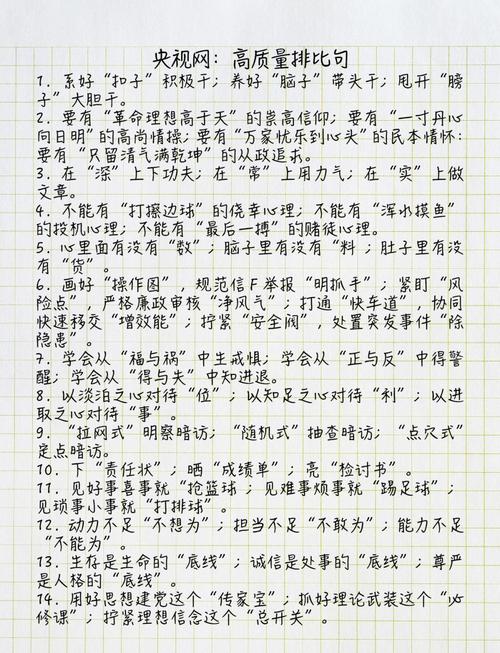 央视网：高质量排比句
1. 系好“扣子”积极干；养好“脑子”带头干；甩开“膀
子”大胆干。
2. 要有“革命理想高于天”的崇高信仰；要有“一寸丹心
向日明”的高尚情操；要有“万家忧乐到心头”的民本情怀；
要有“只留清气满乾坤”的从政追求。
3. 在“深”上下功夫；在“常”上用力气；在“实”上做
文章。
4. 不能有“打擦边球”的侥幸心理；不能有“浑水摸鱼”
的投机心理；不能有“最后一搏”的赌徒心理。
5. 心里面有没有“数”；脑子里有没有“料；肚子里有没
有“货”。
6. 画好“操作图”，规范信F举报“明抓手”；紧盯“风
险点”，严格廉政审核“净风气”；打通“快车道”，协同
快速移交“增效能”；拧紧“安全阀”，处置突发事件“除
隐患”。
7. 学会从“福与祸”中生戒惧；学会从“正与反”中得警
醒；学会从“得与失”中知进退。
8. 以淡泊之心对待“位”；以知足之心对待“利”；以进
取之心对待“事”。
9. “拉网式”明察暗访；“随机式”抽查暗访；“点穴式”
定点暗访。
10. 下“责任状”；晒“成绩单”；亮“检讨书”。
11. 见好事喜事就“抢篮球；见难事烦事就“踢足球”；
见琐事小事就“打排球”。
12. 动力不足“不想为”；担当不足“不敢为”；能力不足
“不能为”。
13. 生存是生命的“底线”；诚信是处事的“底线”；尊严
是人格的“底线”。
14. 用好思想建党这个“传家宝”；抓好理论武装这个“必
修课”；拧紧理想信念这个“总开关”。